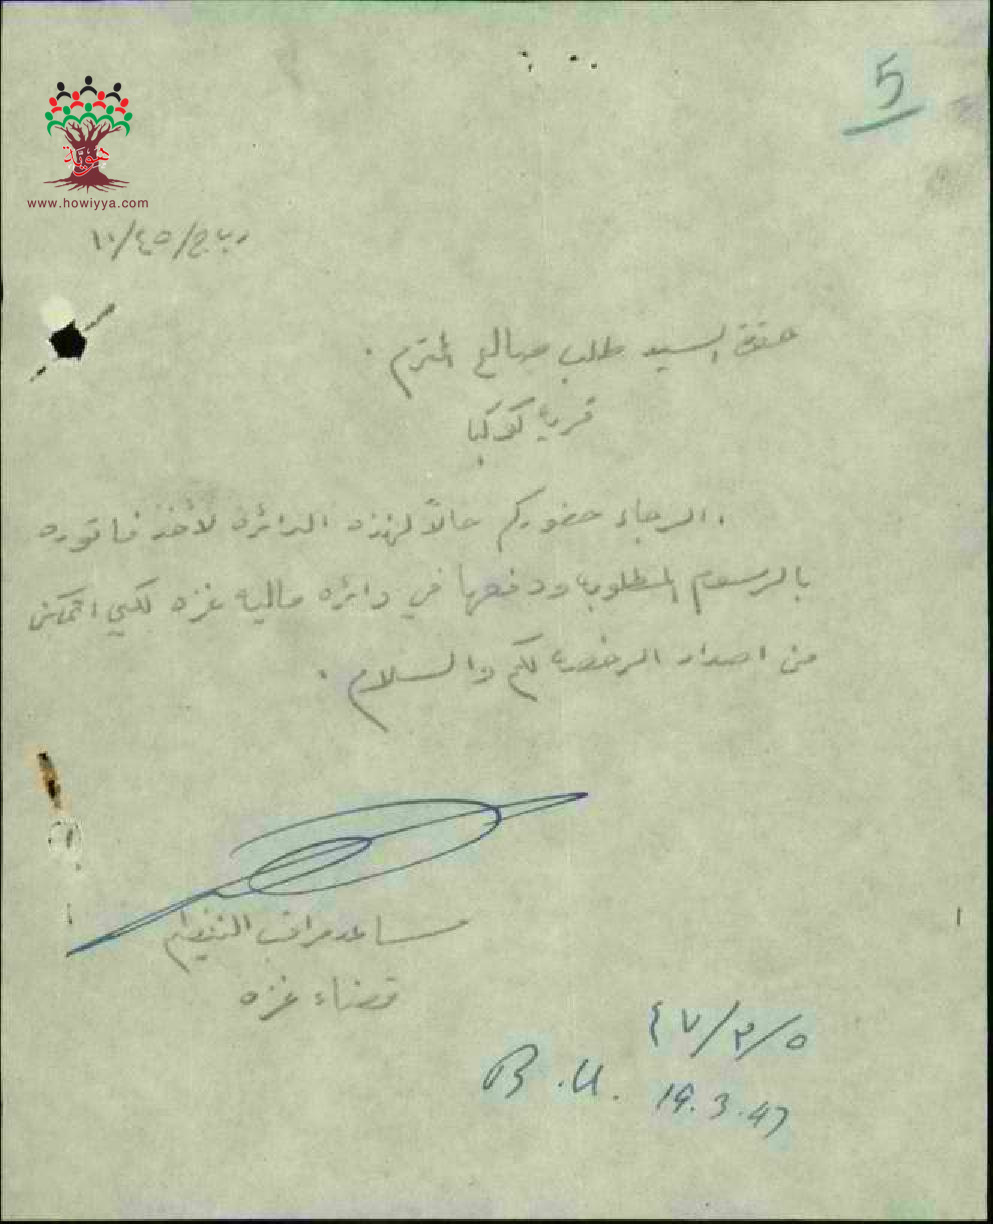 5
هوية
www.howiyya.com
ر ب/ج/٤٥/١٠
حضرة السيد طلب صالح المحترم .
قرية كوكبا
الرجاء حضوركم حالاً لهذه الدائرة لأخذ فاتوره
بالرسوم المطلوبة ودفعها في دائرة مالية غزه لكي اتمكن
من اصدار الرخصة لكم والسلام .
مساعد مراقب التنظيم
قضاء غزه
٤٧/٣/٥
B.U. 19.3.47